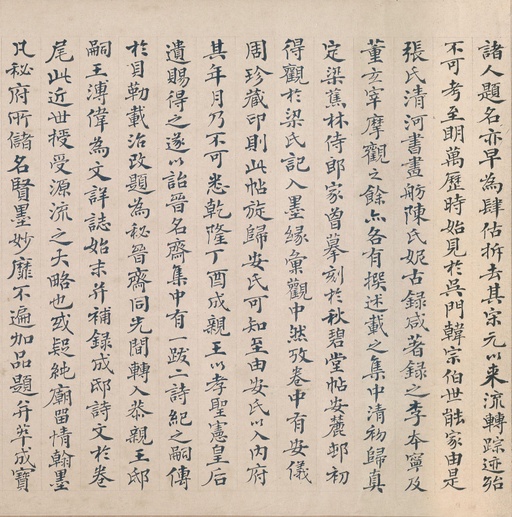 諸人題名亦早為肆估拆去其宋元以来流轉踪迹殆
不可考至明萬歷時始見於吳門韓宗伯世能家由是
張氏清河書畫舫陳氏妮古録咸著録之李本寧及
董玄宰摩觀之餘亦各有撰述載之集中清初歸真
定梁蕉林侍郎家曾摹刻於秋碧堂帖安麓邨初
得觀於梁氏記入墨緣彙觀中然攷卷中有安儀
周珍藏印則此帖旋歸安氏可知至由安氏以入内府
其年月乃不可悉乾隆丁酉成親王以孝聖憲皇后
遺賜得之遂以詒晉名齋集中有一跋二詩紀之嗣傳
於貝勒載治改題為秘晉齋同光間轉入恭親王邸
嗣王溥偉為文詳誌始末并補録成邸詩文於卷
尾此近世授受源流之大略也或疑純廟留情翰墨
凡秘府所儲名賢墨妙靡不遍加品題并萃成寶